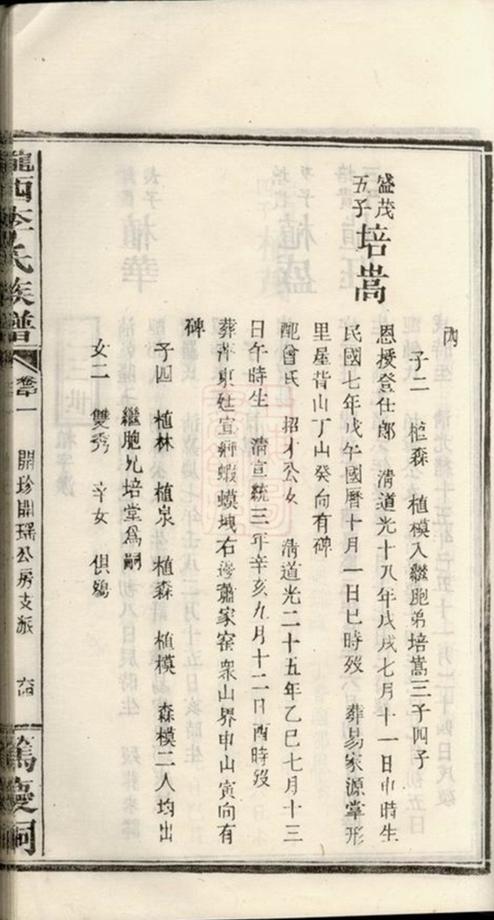 內
子二　植森　植模入繼胞弟培嵩三子四子
盛茂
五子
培嵩
恩授登仕郎　清道光十八年戊戌七月十一日申時生
民國七年戊午國曆十月一日巳時歿　葬易家源掌形
里屋背山丁山癸向有碑
配曾氏　招才公女　清道光二十五年乙巳七月十三
日午時生　清宣統三年辛亥九月十二日酉時歿
葬萍東廷宣鄉蝦蟆塘右邊蕭家窰衆山界申山寅向有
碑
子四　植林　植泉　植森　植模　森模二人均出
繼胞兄培堂爲嗣
女二　雙秀　辛女　俱鷚
隴西李氏族譜
卷一
開珍開瑤公房支派
篤慶祠